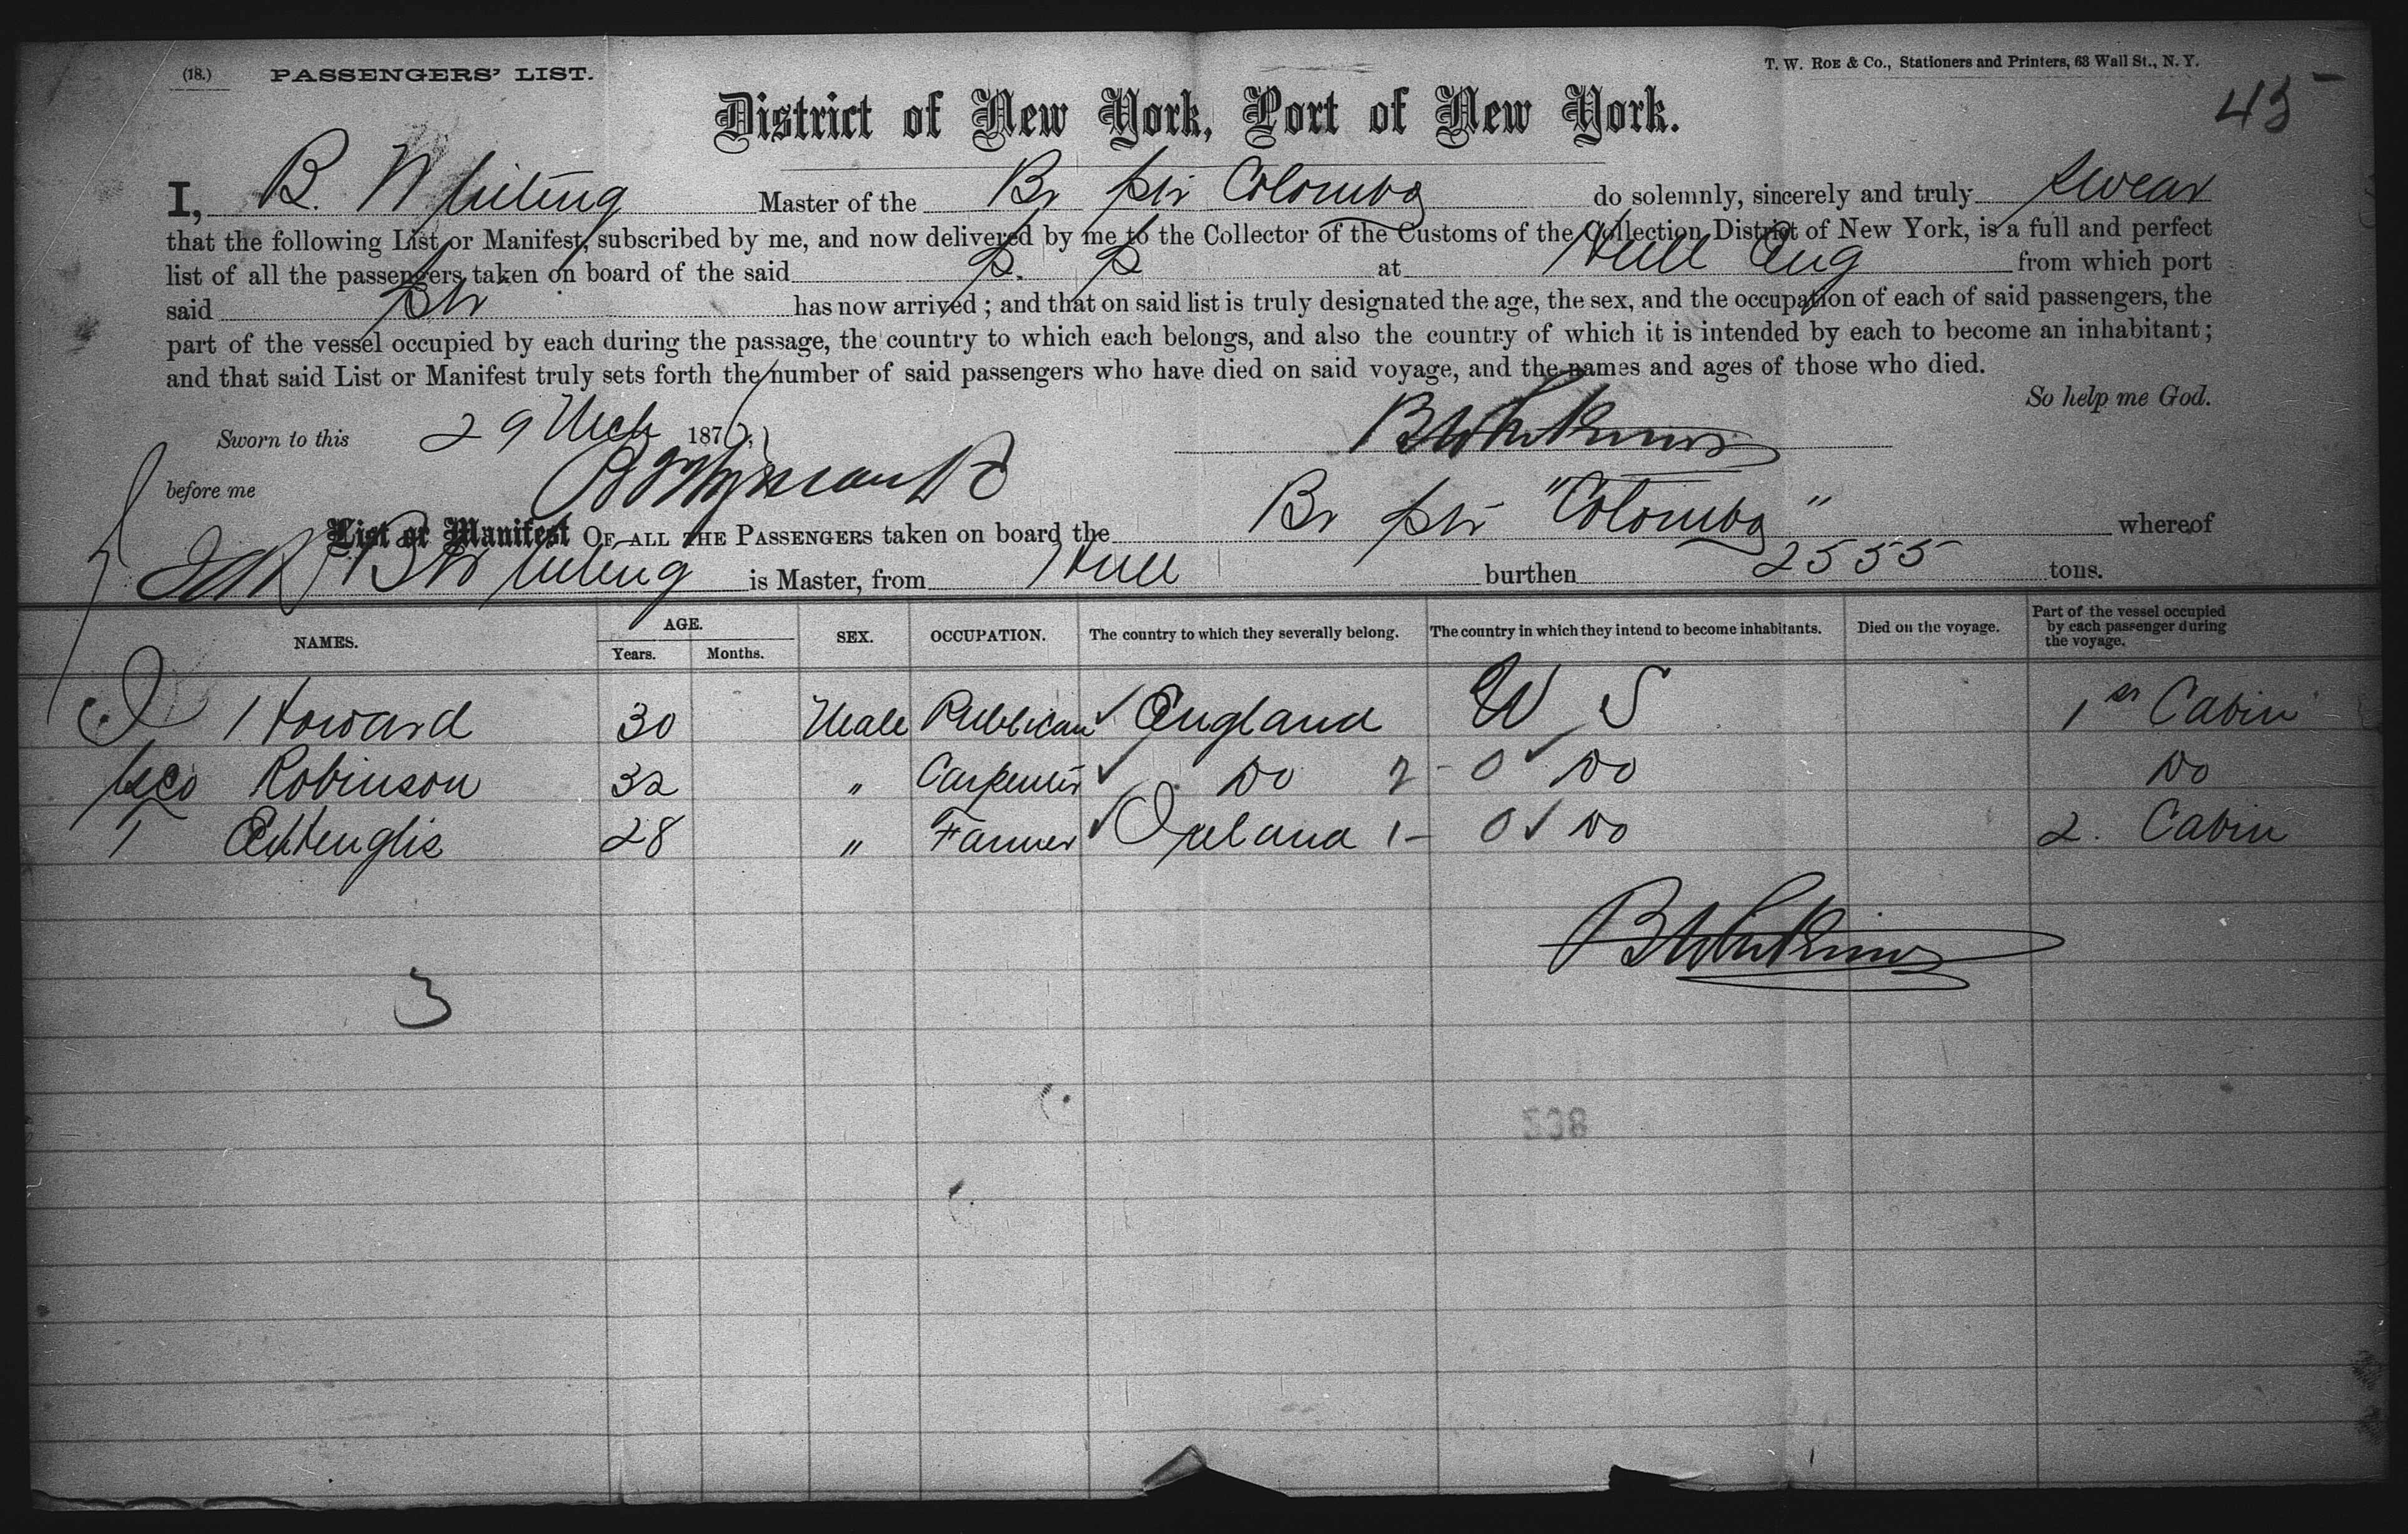 (18.) PASSENGERS' LIST.
T. W. ROE & Co., Stationers and Printers, 63 Wall St., N. Y.
45
District of New York, Port of New York.
I, B. Whiting Master of the Br Str Colombo do solemnly, sincerely and truly swear
that the following List or Manifest, subscribed by me, and now delivered by me to the Collector of the Customs of the Collection District of New York, is a full and perfect
list of all the passengers taken on board of the said S. S at Hull Eng from which port
said Str has now arrived ; and that on said list is truly designated the age, the sex, and the occupation of each of said passengers, the
part of the vessel occupied by each during the passage, the country to which each belongs, and also the country of which it is intended by each to become an inhabitant ;
and that said List or Manifest truly sets forth the number of said passengers who have died on said voyage, and the names and ages of those who died.
So help me God.
Sworn to this 29 Mch 187
before me
List or Manifest OF ALL THE PASSENGERS taken on board the Br Str "Colombo" whereof
B Whiting is Master, from Hull burthen 2555 tons.
NAMES. AGE. Years. Months. SEX. OCCUPATION. The country to which they severally belong. The country in which they intend to become inhabitants. Died on the voyage. Part of the vessel occupied by each passenger during the voyage.
Howard 30 Male Publican England U S 1st Cabin
Geo Robinson 32 " Carpenter Do 2 - 0 Do Do
28 " Farmer Ireland 1 - 0 Do 2. Cabin
3
208